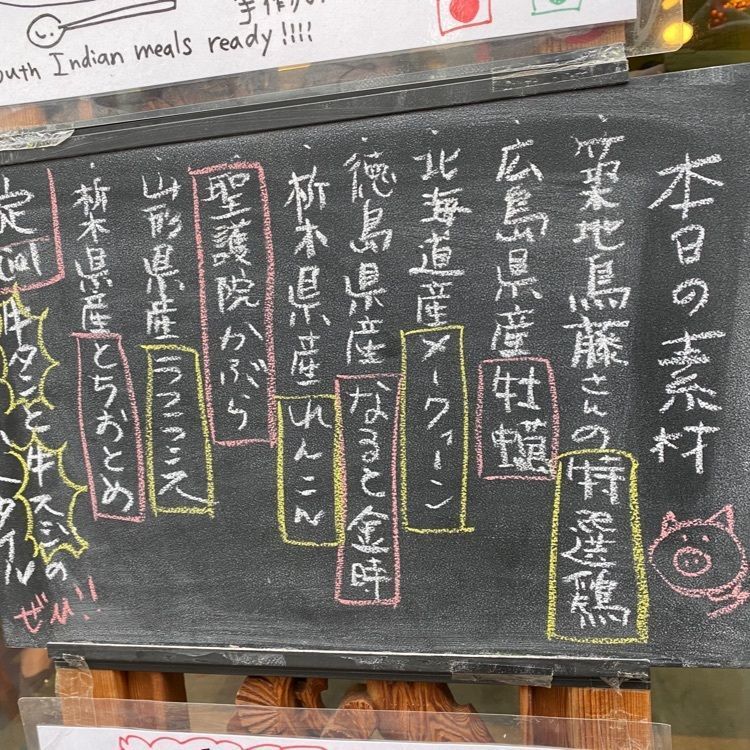 手作り
outh Indian meals ready !!!!
本日の素材
・築地鳥藤さんの特選鶏
・広島県産牡蠣
・北海道産メークイーン
・徳島県産なると金時
・栃木県産れんこん
・聖護院かぶら
・山形県産ラフランス
・栃木県産とちおとめ
牛タンと牛スジの
ぜひ!!